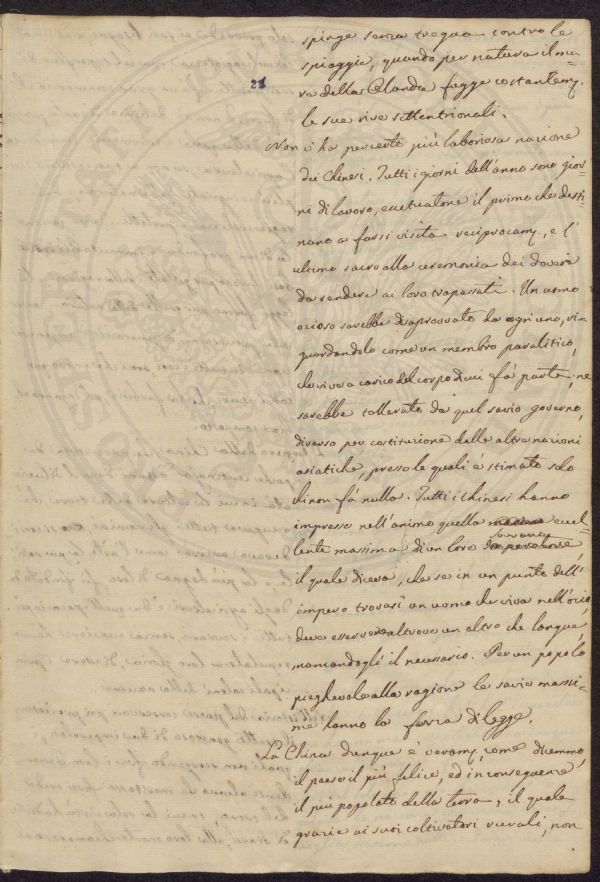 spinge senza tregua contro le
spiaggie, quando per natura il ma-
21
re della Olanda fugge costantem.
le sue rive settentrionali.
Non v'ha per certo più laboriosa nazione
dei Chinesi. Tutti i giorni dell'anno sono gior-
ni di lavoro, eccettuatone il primo che desti-
nano a farsi visita reciprocam., e l'
ultimo sacro alla ceremonia dei doveri
da rendere ai loro trapassati. Un uomo
ozioso sarebbe disaprovato da ogni uno, ri-
guardandolo come un membro paralitico,
che viva a carico del corpo di cui fà parte, ne
sarebbe tollerato da quel savio governo,
diverso per costituzione delle altre nazioni
asiatiche, presso le quali è stimato solo
chi non fà nulla. Tutti i chinesi hanno
impresso nell'animo quella eccel-
sovrano
lente massima di un loro imperatore
il quale diceva, che se in un punto dell'
impero trovasi un uomo che viva nell'ozio,
deve esservene altrove un altro che langue,
mancandogli il necessario. Per un popolo
pieghevole alla ragione le savie massi-
me hanno la forza di legge.
La China dunque è, come dicemmo,
il paese il più felice, ed in conseguenza
il più popolato della terra, il quale
grazie ai suoi coltivatori rurali, non